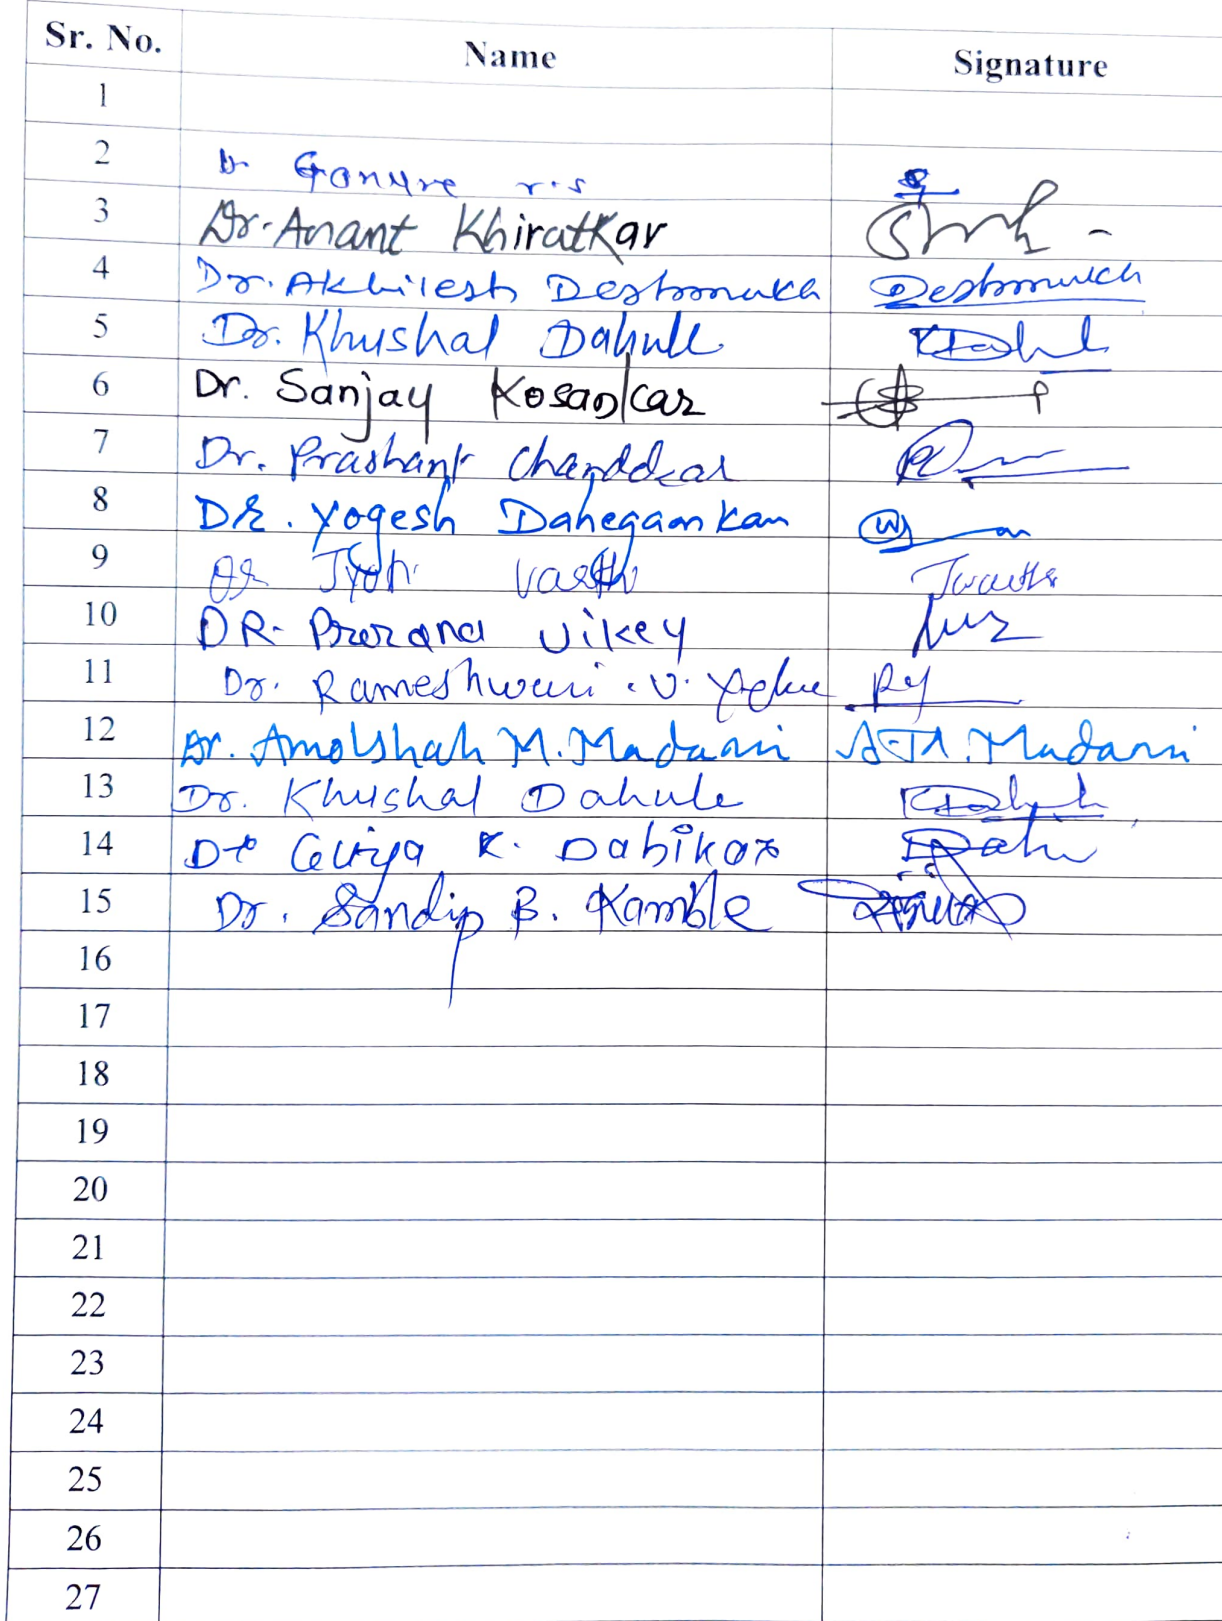 Sr. No. Name Signature
1
2 Dr Gonure r.s
3 Dr. Anant Khiratkar
4 Dr. Akhilesh Deshmukh Deshmukh
5 Dr. Khushal Dahule
6 Dr. Sanjay Kosankar
7 Dr. Prashant Chanddkar
8 DR. Yogesh Dahegaonkar
9 Dr Jyoti
10 DR. Prerana Uikey
11 Dr. Rameshwari . V.
12 Dr. Amolshah M. Madavi A.M. Madavi
13 Dr. Khushal Dahule
14 Dr K. Dabikar
15 Dr. Sandip B. Kamble
16
17
18
19
20
21
22
23
24
25
26
27